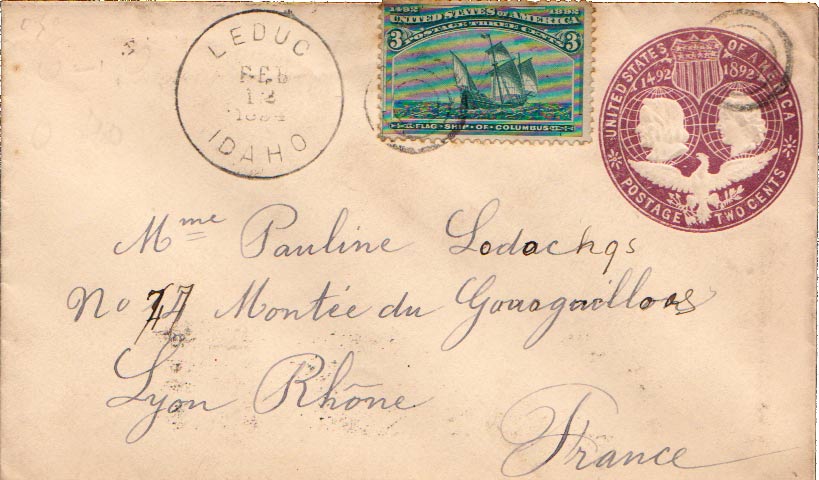 LEDUC
FEB
12
1894
IDAHO
1492 1892
UNITED STATES OF AMERICA
POSTAGE THREE CENTS
3 3
FLAG-SHIP OF COLUMBUS
UNITED STATES OF AMERICA
1492 1892
POSTAGE TWO CENTS
Mme Pauline
No Montée du
Lyon Rhône
France